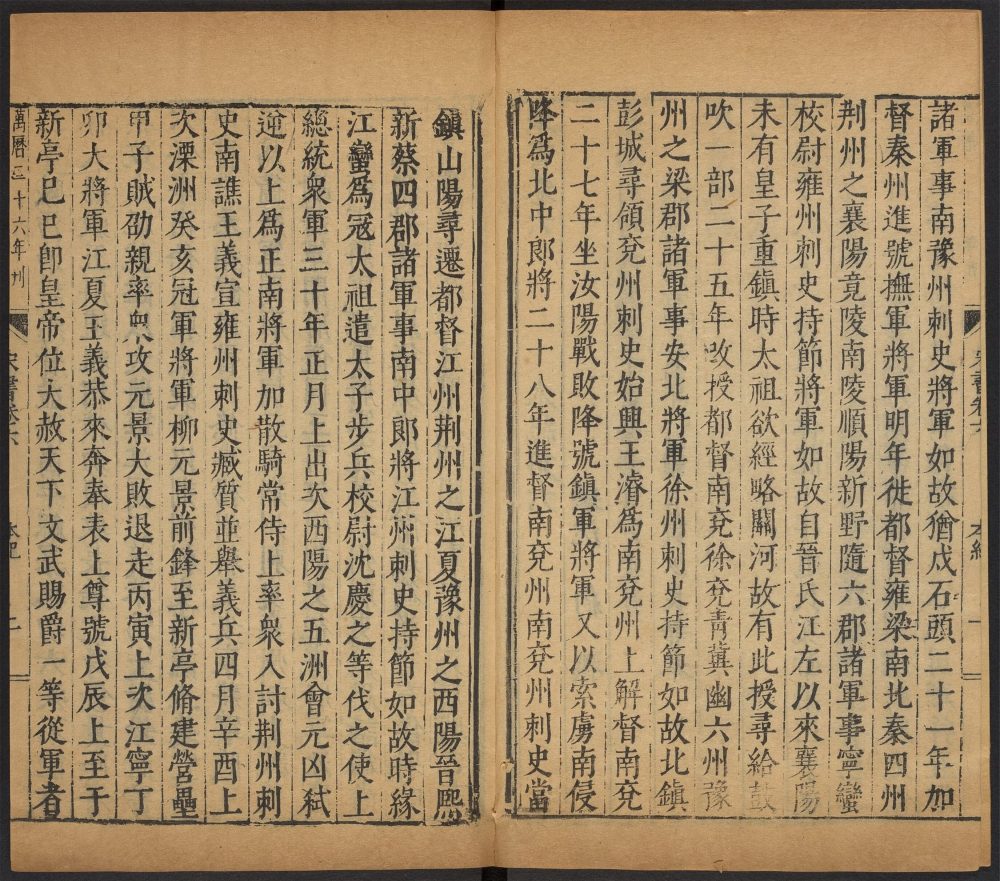 諸軍事南豫州刺史將軍如故猶戍石頭二十一年加
督秦州進號撫軍將軍明年徙都督雍梁南北秦四州
荆州之襄陽竟陵南陵順陽新野隨六郡諸軍事寧蠻
校尉雍州刺史持節將軍如故自晉氏江左以來襄陽
未有皇子重鎮時太祖欲經略關河故有此授尋給鼓
吹一部二十五年改授都督南兗徐兗青冀幽六州豫
州之梁郡諸軍事安北將軍徐州刺史持節如故北鎮
彭城尋領兗州刺史始興王濬爲南兗州上解督南兗
二十七年坐汝陽戰敗降號鎮軍將軍又以索虜南侵
降爲北中郎將二十八年進督南兗州南兗州刺史當
鎮山陽尋遷都督江州荆州之江夏豫州之西陽晉熙
新蔡四郡諸軍事南中郎將江州刺史持節如故時緣
江蠻爲宼太祖遣太子步兵校尉沈慶之等伐之使上
總統衆軍三十年正月上出次西陽之五洲會元凶弑
逆以上爲正南將軍加散騎常侍上率衆入討荆州刺
史南譙王義宣雍州刺史臧質並舉義兵四月辛酉上
次溧洲癸亥冠軍將軍柳元景前鋒至新亭脩建營壘
甲子賊劭親率衆攻元景大敗退走丙寅上次江寧丁
卯大將軍江夏王義恭來奔奉表上尊號戊辰上至于
新亭己巳卽皇帝位大赦天下文武賜爵一等從軍者
萬曆二十六年刋
宋書卷六
本紀
二
宋書卷六
本紀
一